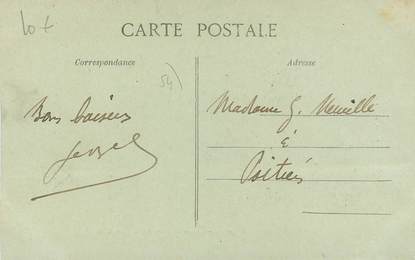 Lot
CARTE POSTALE
Correspondance
Adresse
54)
Bons baisers
Madame G. Neuille
à
Poitiers